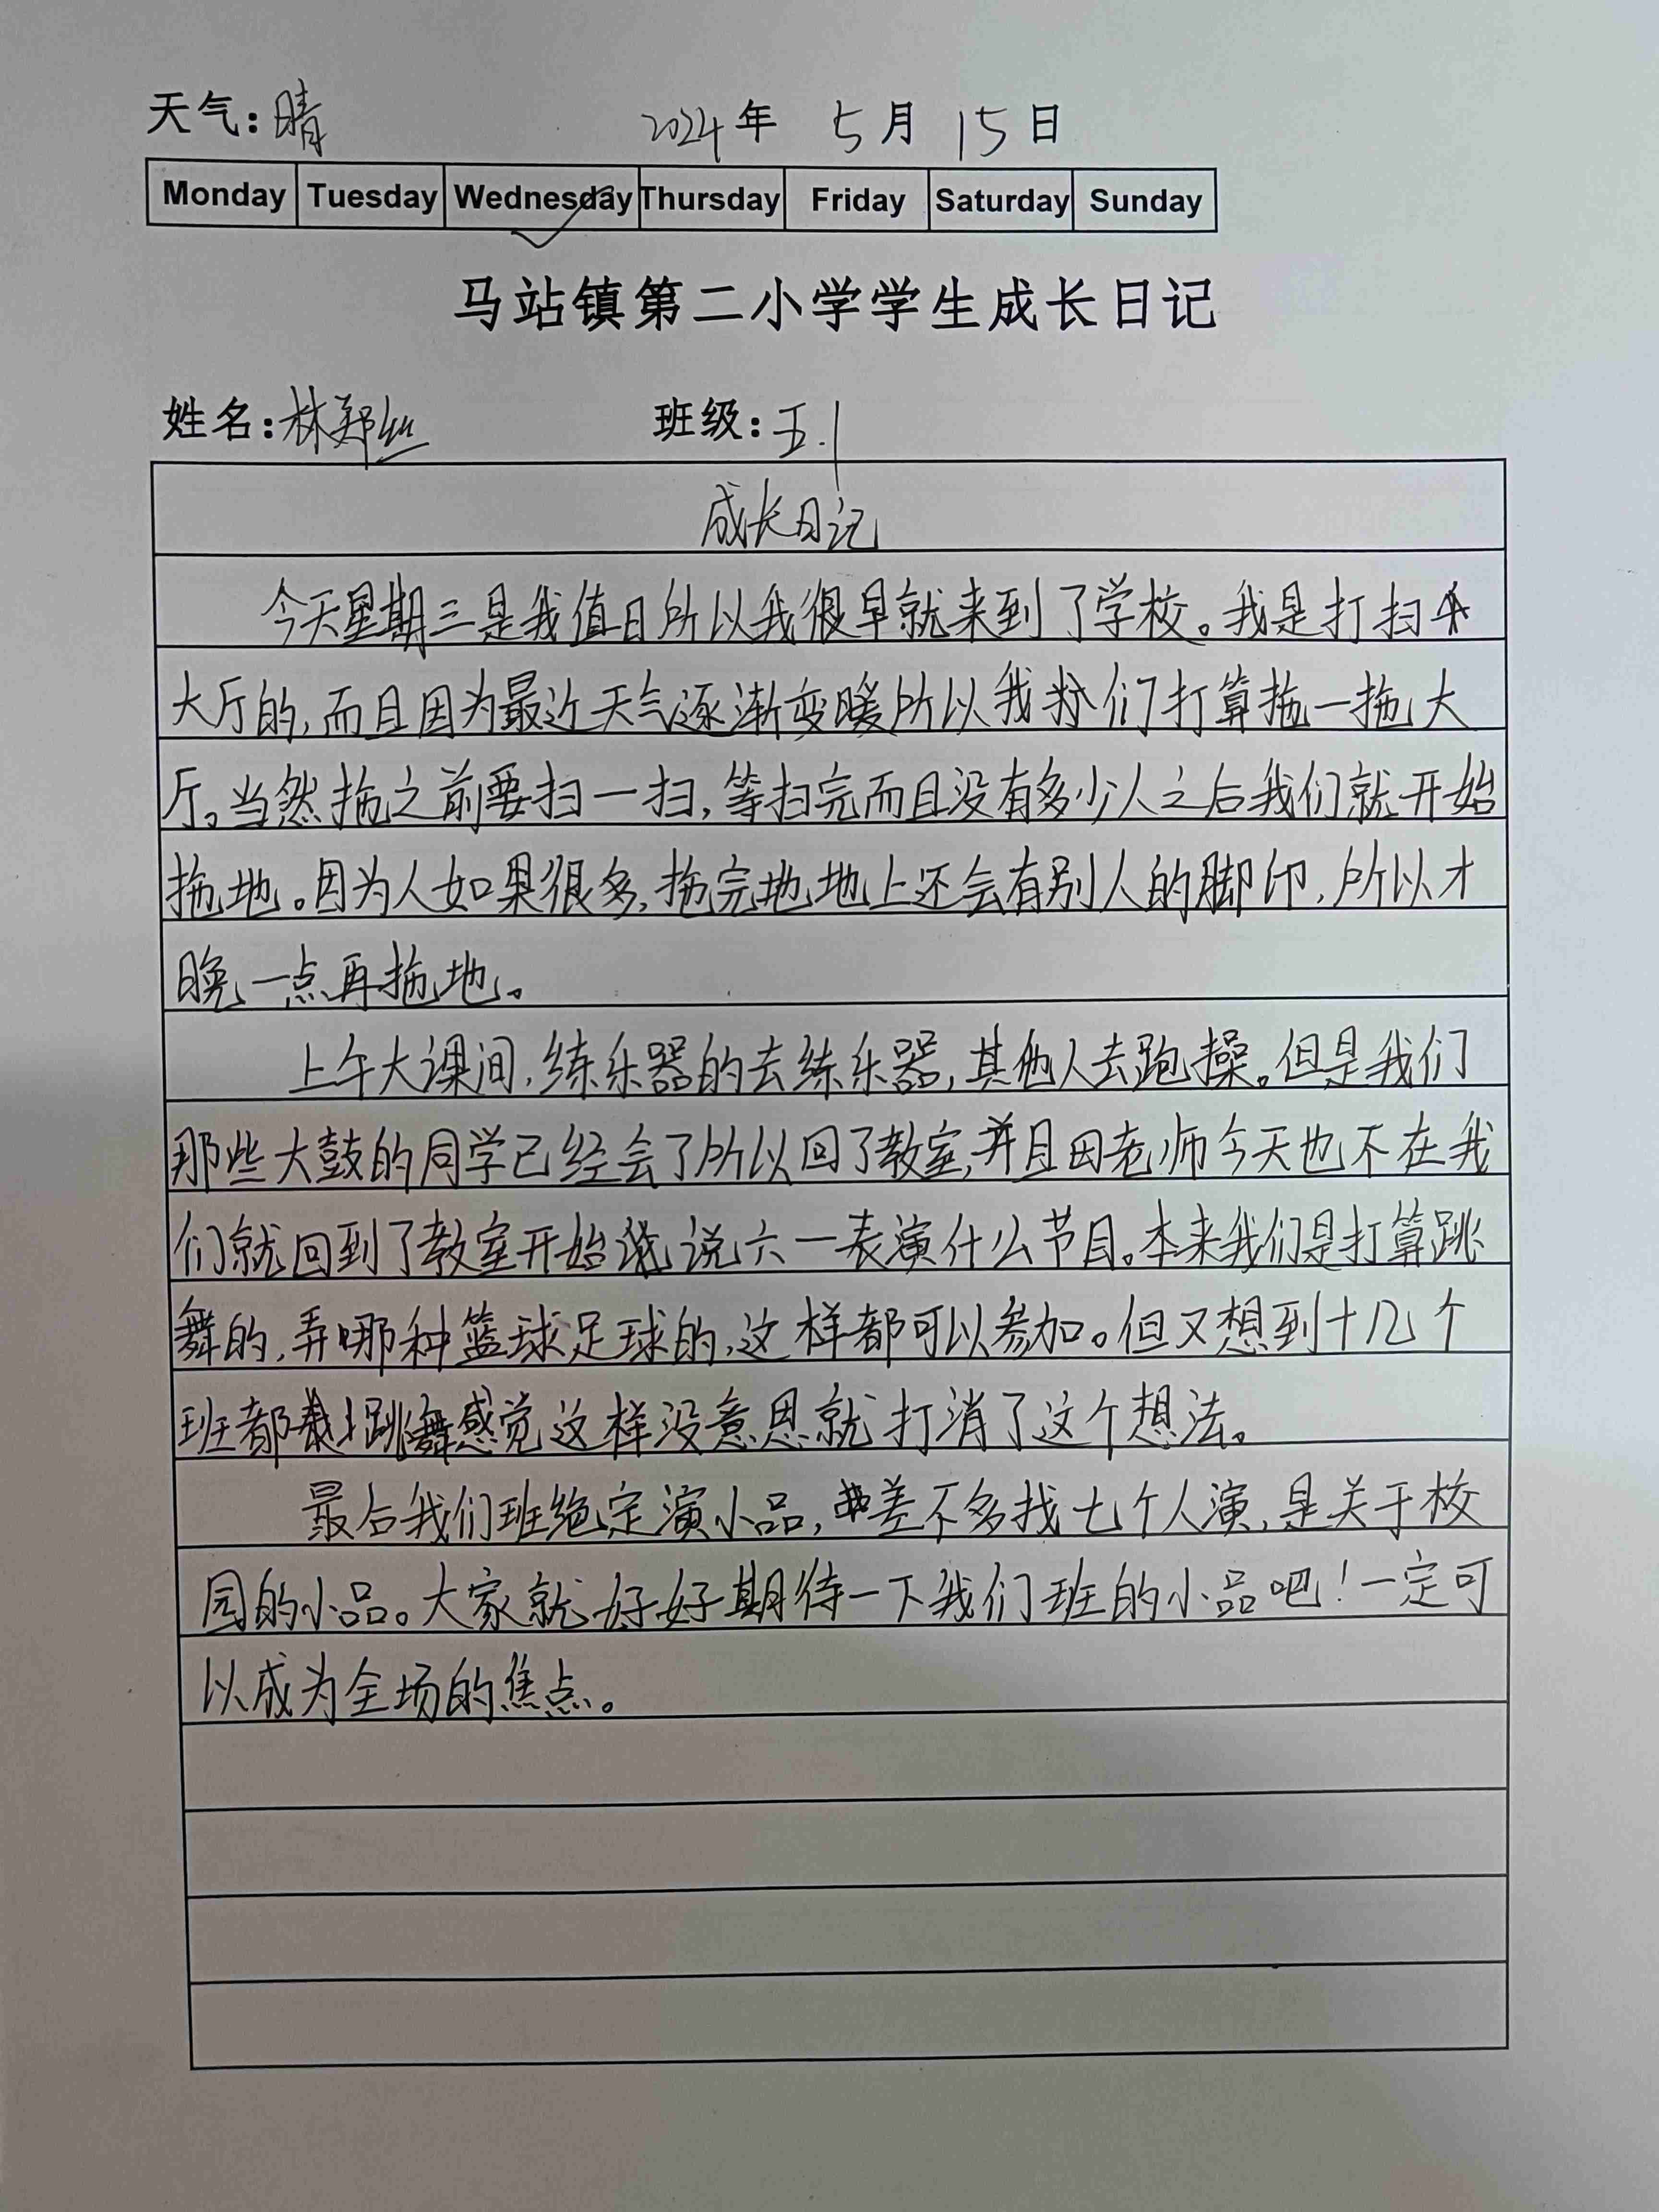 天气:晴 2024年 5月 15日
Monday Tuesday Wednesday Thursday Friday Saturday Sunday
马站镇第二小学学生成长日记
姓名:林郑丝 班级:五.1
成长日记
今天星期三是我值日所以我很早就来到了学校。我是打扫
大厅的,而且因为最近天气逐渐变暖所以我们打算拖一拖大
厅。当然拖之前要扫一扫,等扫完而且没有多少人之后我们就开始
拖地。因为人如果很多,拖完地地上还会有别人的脚印,所以才
晚一点再拖地。
上午大课间,练乐器的去练乐器,其他人去跑操。但是我们
那些大鼓的同学已经会了所以回了教室,并且因老师今天也不在我
们就回到了教室开始说六一表演什么节目。本来我们是打算跳
舞的,弄哪种篮球足球的,这样都可以参加。但又想到十几个
班都跳舞感觉这样没意思就打消了这个想法。
最后我们班绝定演小品,差不多找七个人演,是关于校
园的小品。大家就好好期待一下我们班的小品吧!一定可
以成为全场的焦点。